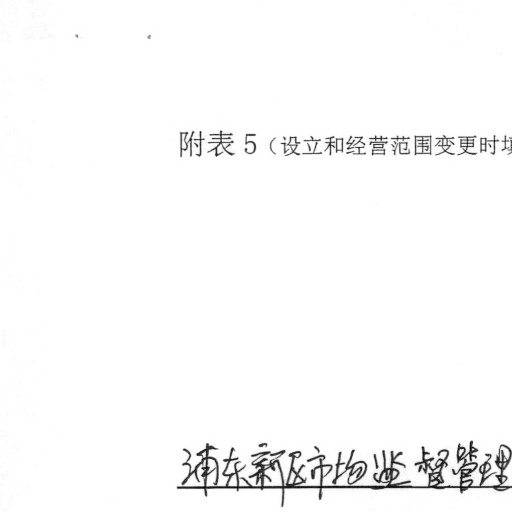 附表 5（设立和经营范围变更时填
浦东新区市场监督管理